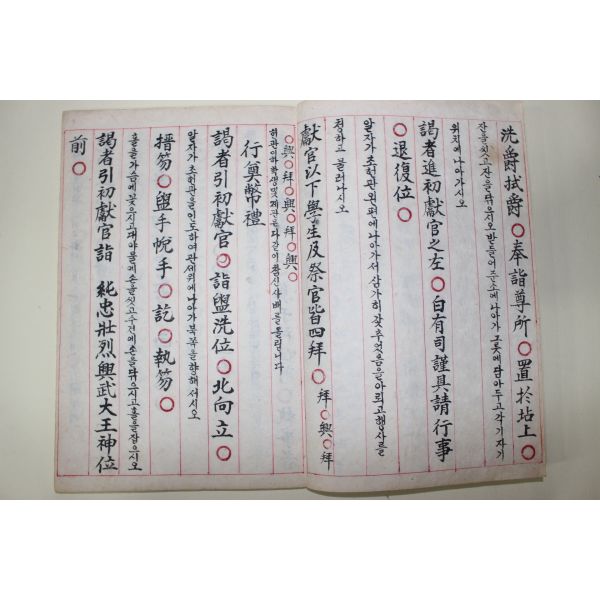 洗爵拭爵○奉詣尊所○置於坫上○
잔을씻고잔을닦으시오받들어준소에나아가그릇에담아두고각기자기
위치에나아가시오
謁者進初獻官之左○白有司謹具請行事
○退復位○
알자가초헌관왼편에나아가서삼가히갖추었음을아뢰고행사를
청하고물러나시오
獻官以下學生及祭官皆四拜○拜○興○拜
○興○拜○興○拜○興○
헌관이하학생및제관은다같이흥신사배를올립니다
行奠幣禮
謁者引初獻官○詣盥洗位○北向立○
알자가초헌관을인도하여관세위에나아가북쪽을향해서시오
搢笏○盥手帨手○訖○執笏○
홀을가슴에꽂으시고대야물에손을씻고수건에손을닦으시고홀을잡으시오
謁者引初獻官詣 純忠壯烈興武大王神位
前○